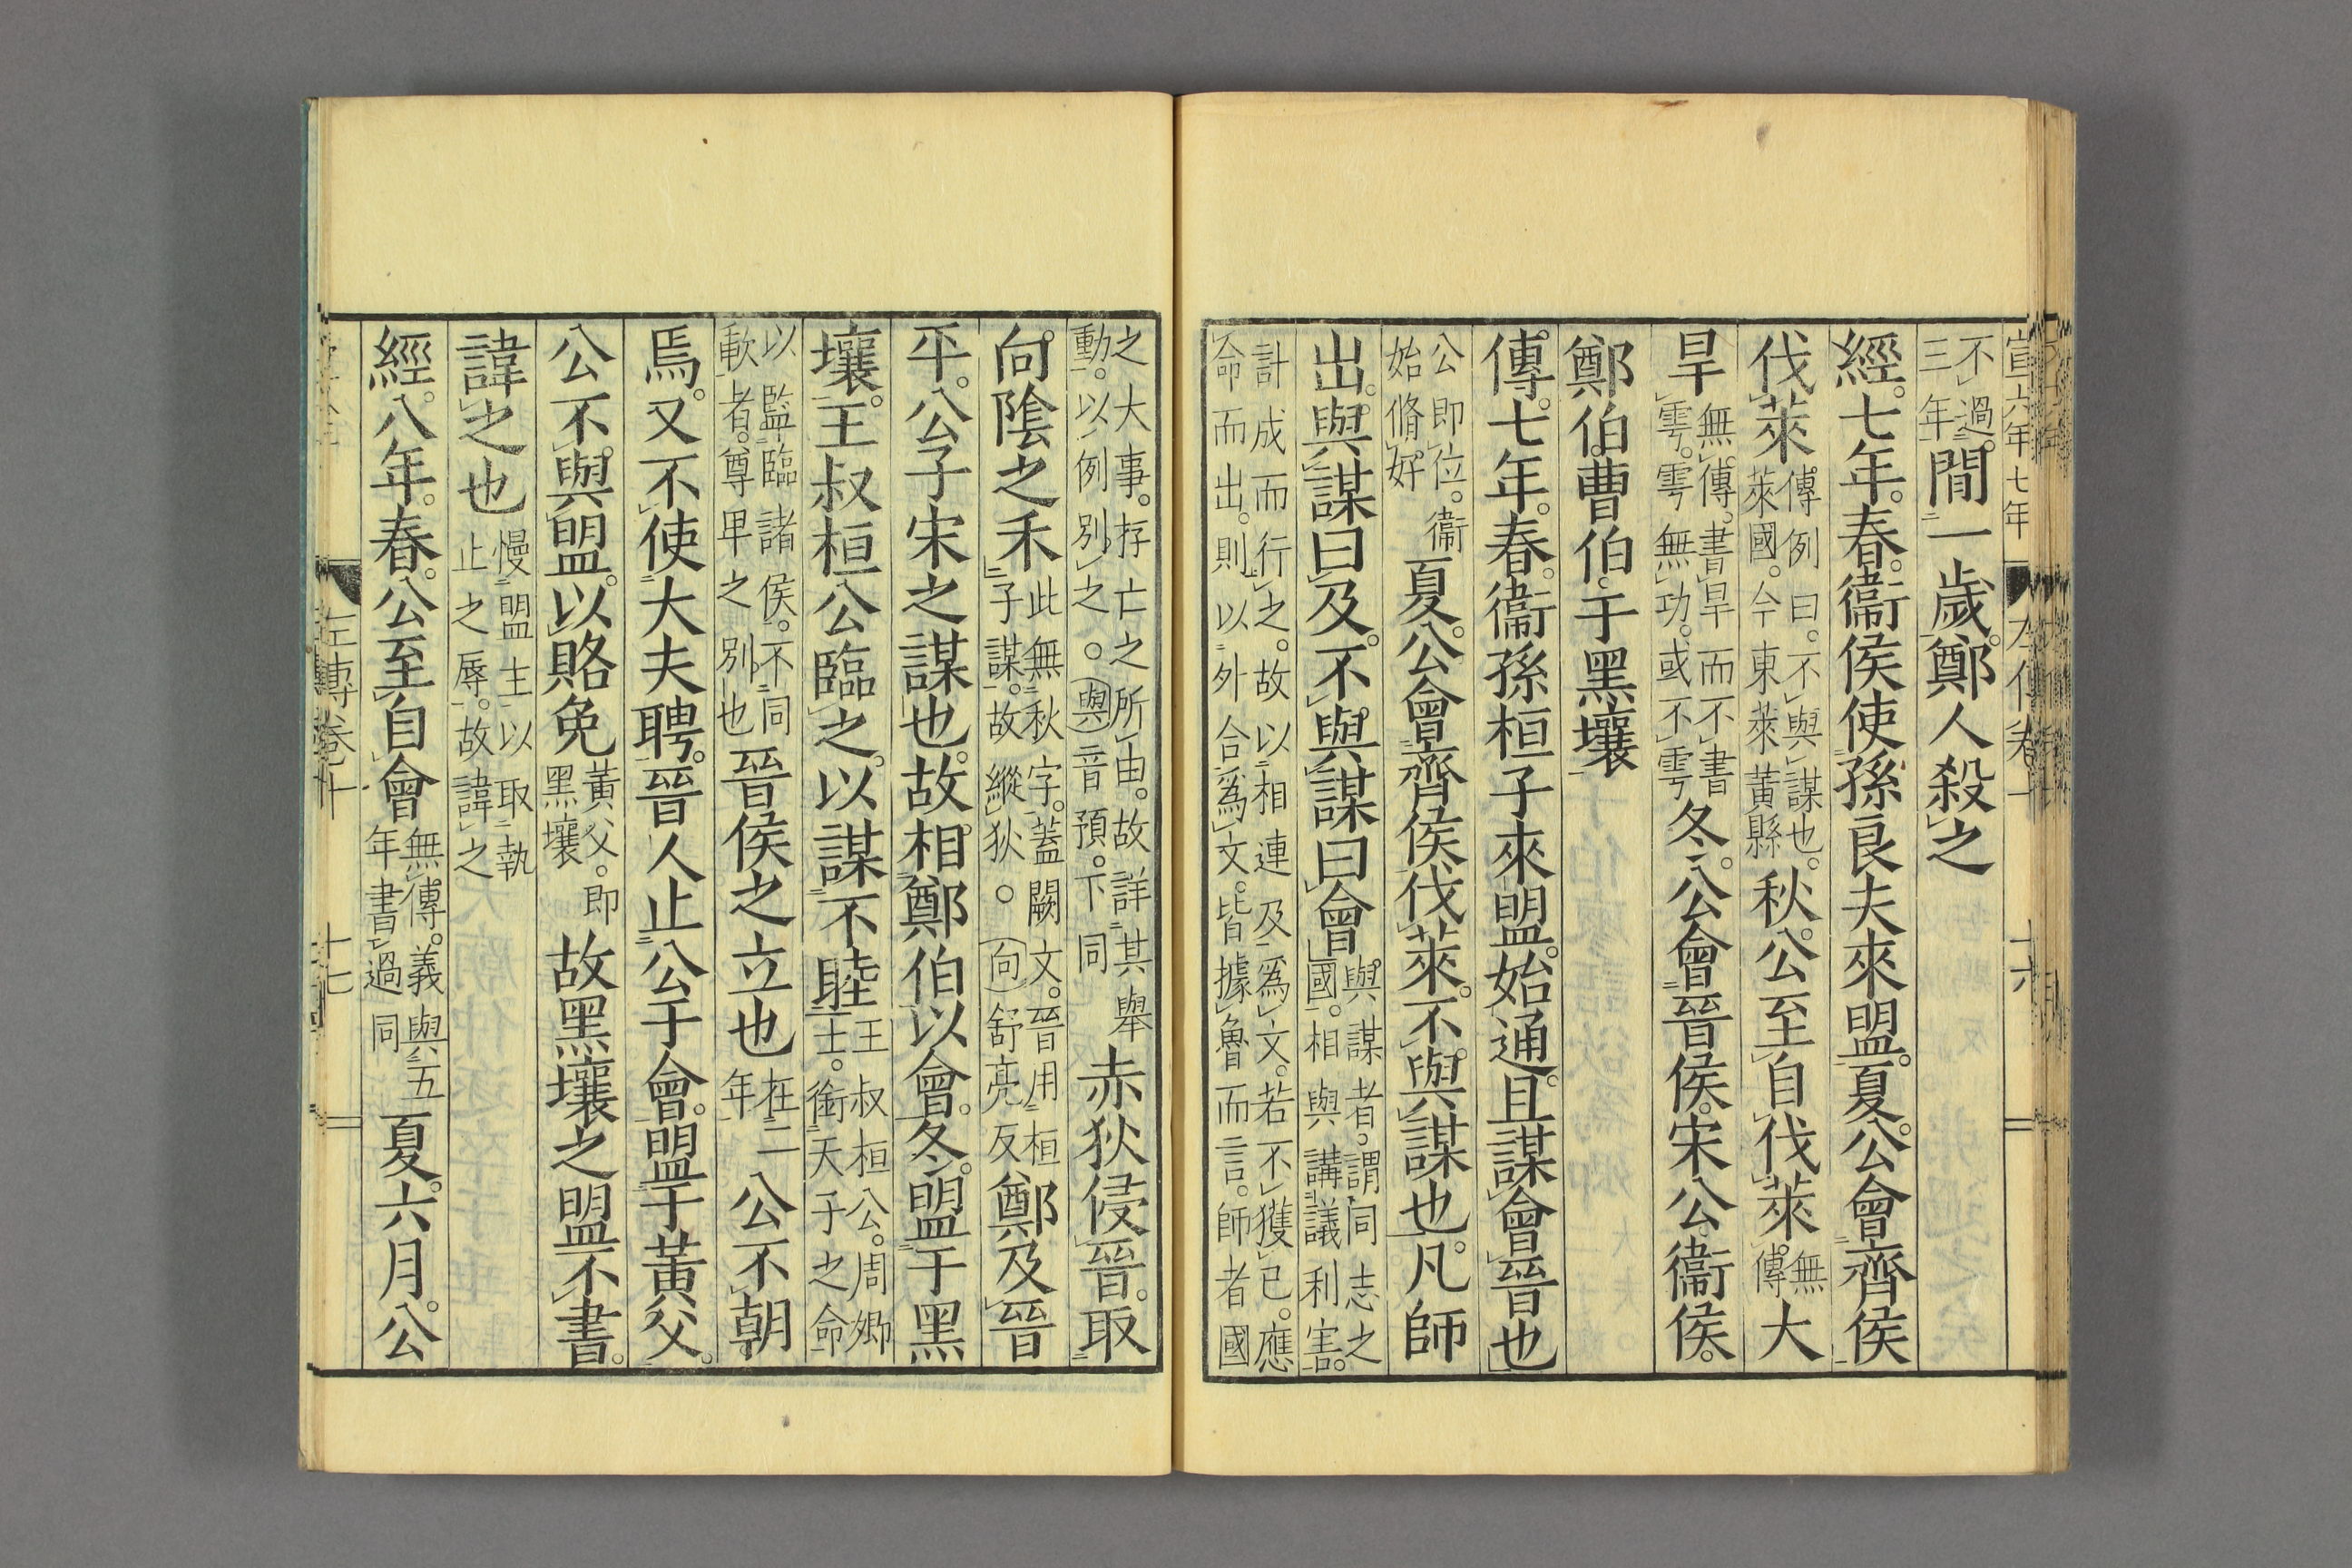 宣六年七年
十六
不過三年間一歲。鄭人殺之
經。七年。春。衞侯使孫良夫來盟。夏。公會齊侯
伐萊傳例曰。不與謀也。萊國。今東萊黃縣秋。公至自伐萊。無傳大
旱無傳。書旱而不書雩。雩無功。或不雩冬。公會晉侯。宋公。衞侯。
鄭伯。曹伯。于黑壤
傳。七年。春。衞孫桓子來盟。始通。且謀會晉也
公即位。衞始脩好夏。公會齊侯伐萊。不與謀也。凡師
出。與謀曰及。不與謀曰會與謀者。謂同志之國。相與講議利害。
計成而行之。故以相連及爲文。若不獲已。應
命而出。則以外合爲文。皆據魯而言。師者國
之大事。存亡之所由。故詳其舉動。以例別之。○與音預。下同赤狄侵晉。取
向陰之禾此無秋字。蓋闕文。晉用桓子謀。故縱狄。○向舒亮反鄭及晉
平。公子宋之謀也。故相鄭伯以會。冬。盟于黑
壤。王叔桓公臨之。以謀不睦王叔桓公。周卿士。銜天子之命
以監臨諸侯。不同歃者。尊卑之別也晉侯之立也在二年公不朝
焉。又不使大夫聘。晉人止公于會。盟于黃父。
公不與盟。以賂免黃父。即黑壤故黑壤之盟不書。
諱之也慢盟主以取執止之辱。故諱之
經。八年。春。公至自會無傳。義與五年書過同夏。六月。公
左傳卷十
十七